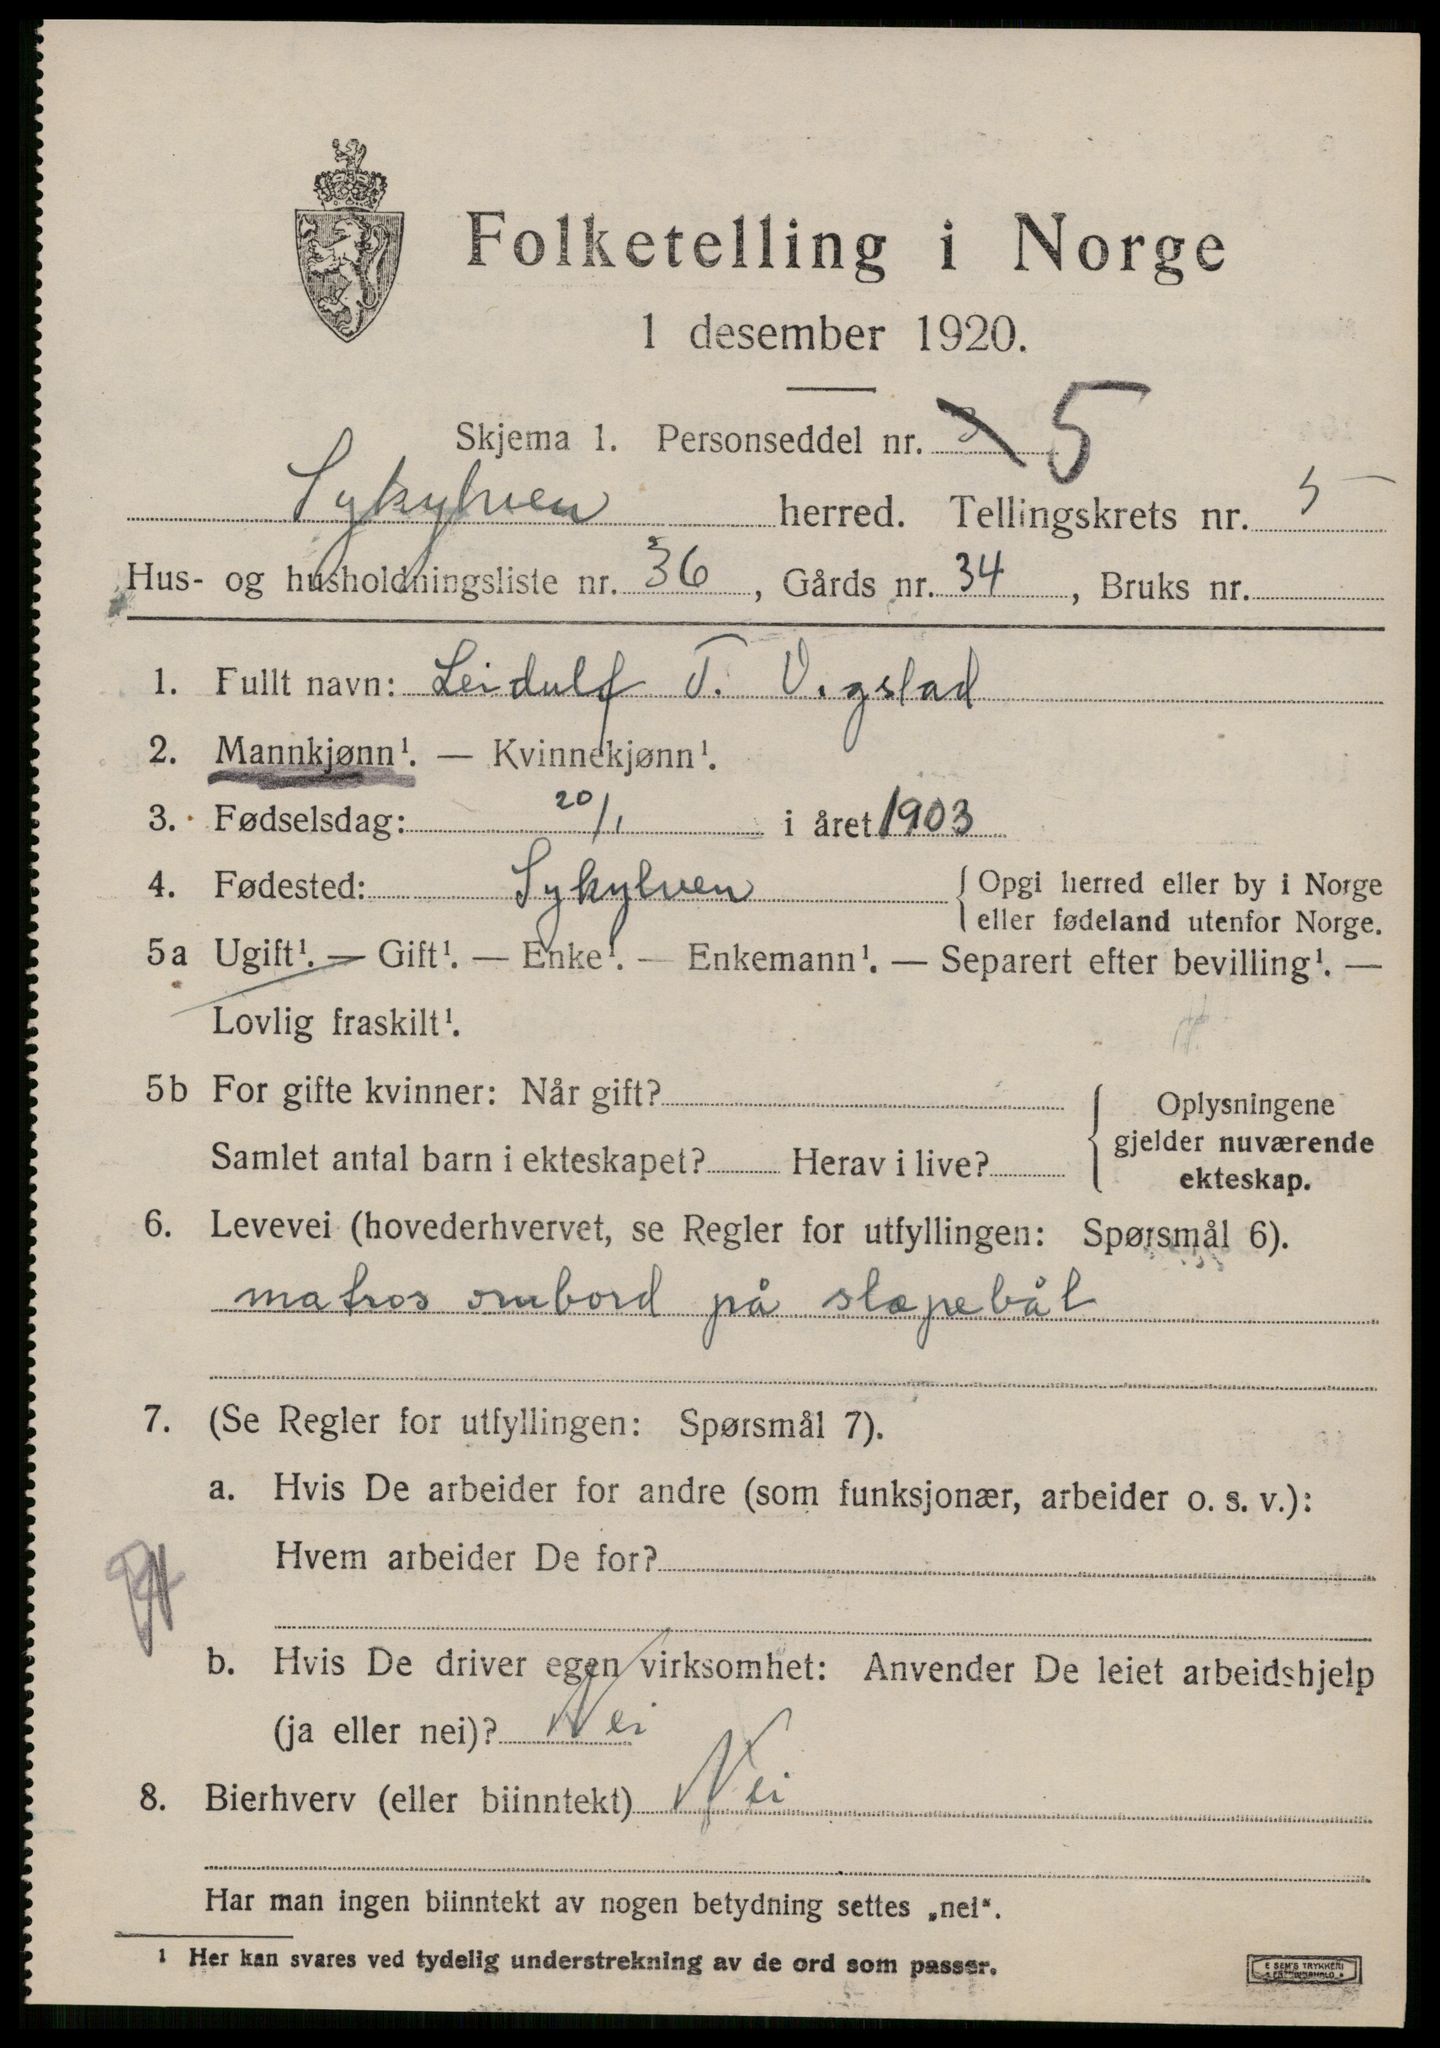 Folketelling i Norge
1 desember 1920.
Skjema 1. Personseddel nr. 3 5
Sykylven herred. Tellingskrets nr. 5
Hus- og husholdningsliste nr. 36, Gårds nr. 34, Bruks nr.
1. Fullt navn: Leidulf T. Vigstad
2. Mannkjønn¹. — Kvinnekjønn¹.
3. Fødselsdag: 20/1 i året 1903
4. Fødested: Sykylven { Opgi herred eller by i Norge
eller fødeland utenfor Norge.
5a Ugift¹. — Gift¹. — Enke¹. — Enkemann¹. — Separert efter bevilling¹. —
Lovlig fraskilt¹.
5b For gifte kvinner: Når gift?
Samlet antal barn i ekteskapet? Herav i live?
Oplysningene
gjelder nuværende
ekteskap.
6. Levevei (hovederhvervet, se Regler for utfyllingen: Spørsmål 6).
matros ombord på slæpebåt
7. (Se Regler for utfyllingen: Spørsmål 7).
a. Hvis De arbeider for andre (som funksjonær, arbeider o. s. v.):
Hvem arbeider De for?
b. Hvis De driver egen virksomhet: Anvender De leiet arbeidshjelp
(ja eller nei)? Nei
8. Bierhverv (eller biinntekt) Nei
Har man ingen biinntekt av nogen betydning settes „nei“.
1 Her kan svares ved tydelig understrekning av de ord som passer.
E SEM'S TRYKKERI